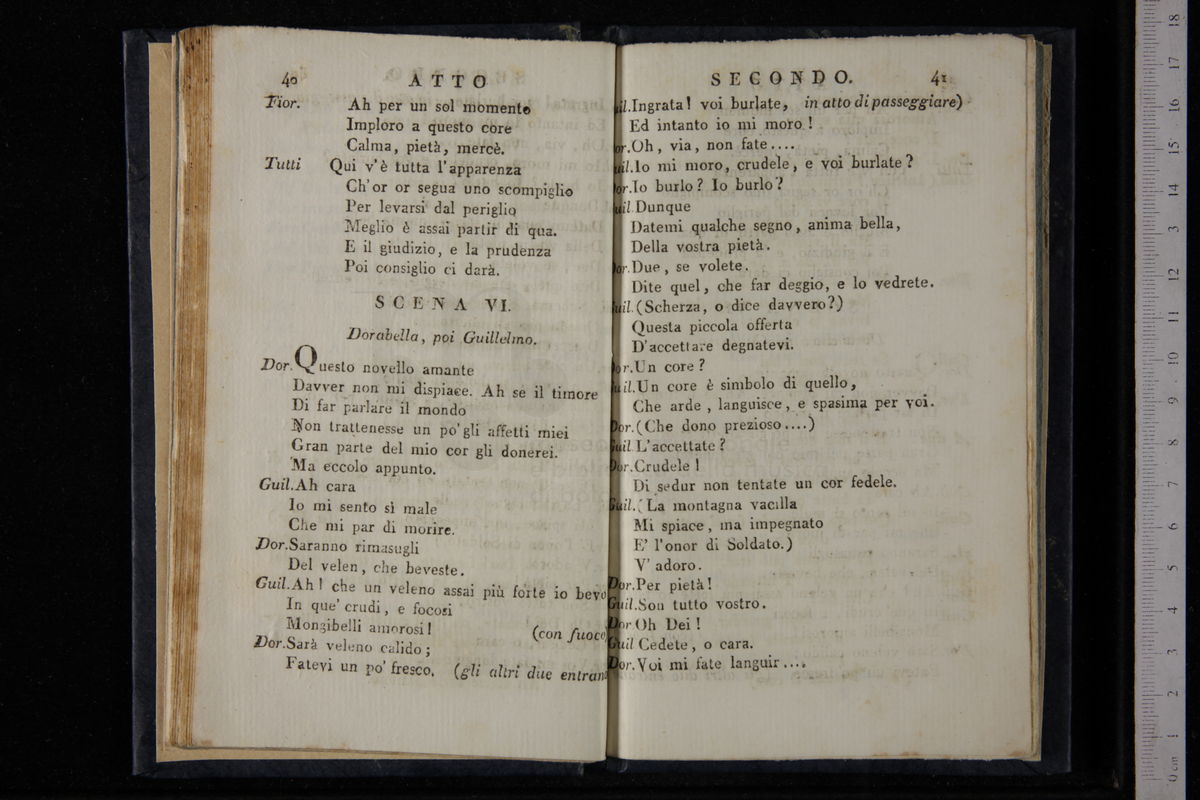 40 ATTO
Fior. Ah per un sol momento
Imploro a questo core
Calma, pietà, mercè.
Tutti Qui v'è tutta l'apparenza
Ch'or or segua uno scompiglio
Per levarsi dal periglio
Meglio è assai partir di qua.
E il giudizio, e la prudenza
Poi consiglio ci darà.
SCENA VI.
Dorabella, poi Guillelmo.
Dor. Questo novello amante
Davver non mi dispiace. Ah se il timore
Di far parlare il mondo
Non trattenesse un po' gli affetti miei
Gran parte del mio cor gli donerei.
Ma eccolo appunto.
Guil. Ah cara
Io mi sento sì male
Che mi par di morire.
Dor. Saranno rimasugli
Del velen, che beveste.
Guil. Ah! che un veleno assai più forte io bevo
In que' crudi, e focosi
Mongibelli amorosi! (con fuoco
Dor. Sarà veleno calido;
Fatevi un po' fresco. (gli altri due entran
SECONDO. 41
il. Ingrata! voi burlate, in atto di passeggiare)
Ed intanto io mi moro!
or. Oh, via, non fate....
uil. Io mi moro, crudele, e voi burlate?
or. Io burlo? Io burlo?
uil. Dunque
Datemi qualche segno, anima bella,
Della vostra pietà.
or. Due, se volete.
Dite quel, che far deggio, e lo vedrete.
uil. (Scherza, o dice davvero?)
Questa piccola offerta
D'accettare degnatevi.
or. Un core?
uil. Un core è simbolo di quello,
Che arde, languisce, e spasima per voi.
Dor. (Che dono prezioso....)
Guil. L'accettate?
Dor. Crudele!
Di sedur non tentate un cor fedele.
Guil. (La montagna vacilla
Mi spiace, ma impegnato
E' l'onor di Soldato.)
V' adoro.
Dor. Per pietà!
Guil. Son tutto vostro.
Dor Oh Dei!
Guil Cedete, o cara.
Dor. Voi mi fate languir....
0 cm 1 2 3 4 5 6 7 8 9 10 11 12 13 14 15 16 17 18